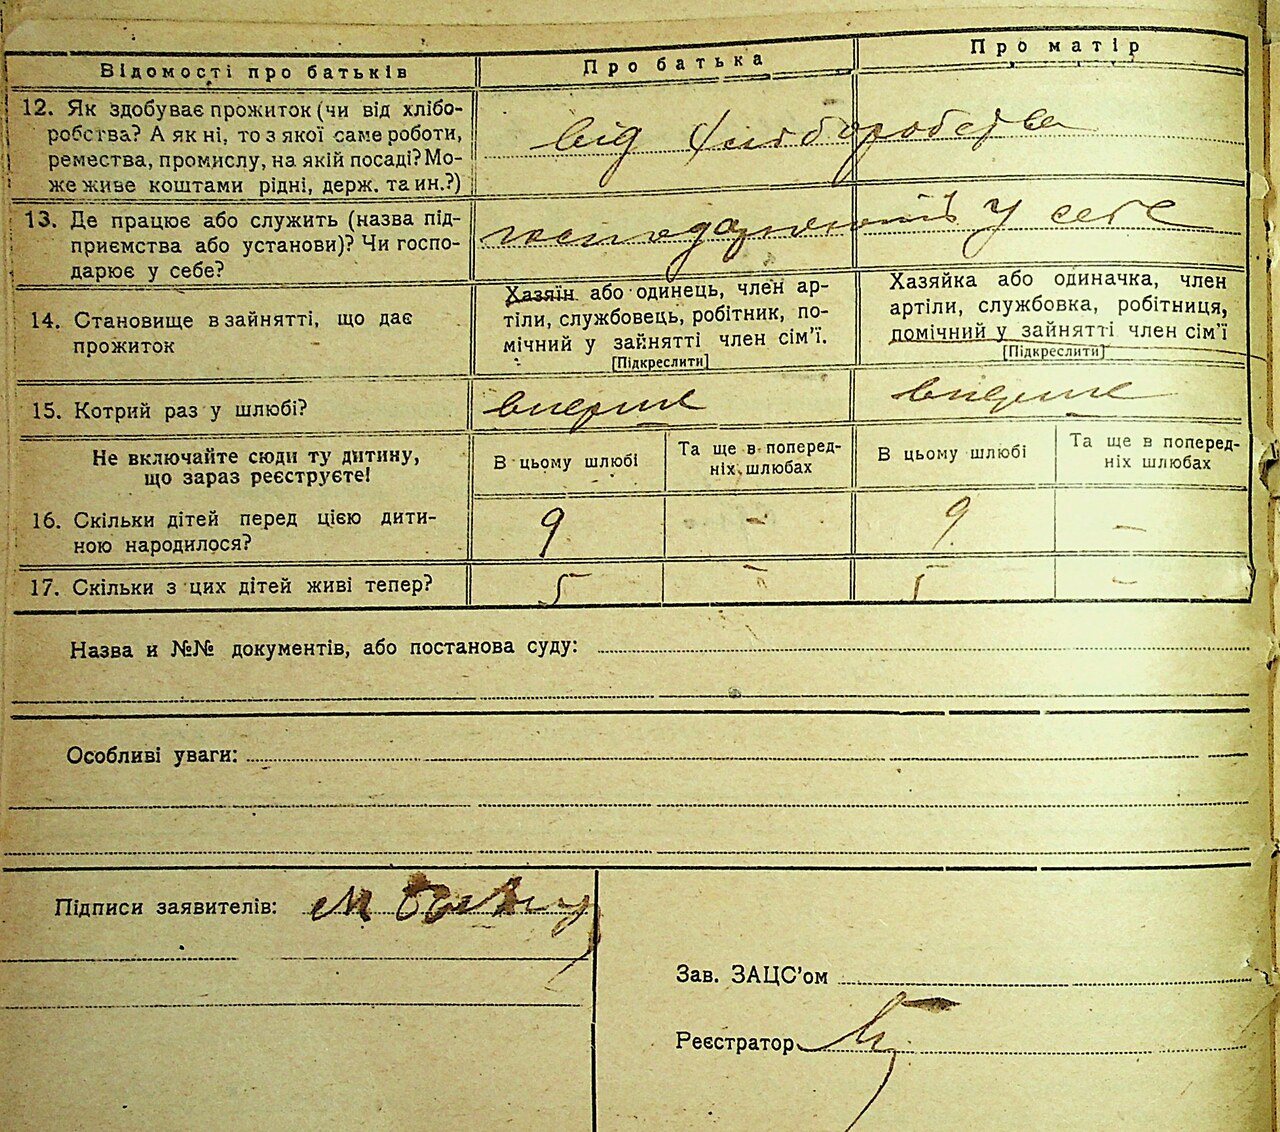 Відомості про батьків
Про батька
Про матір
12. Як здобуває прожиток (чи від хлібо-
робства? А як ні, то з якої саме роботи,
ремества, промислу, на якій посаді? Мо-
же живе коштами рідні, держ. та ин.?)
від хліборобства
13. Де працює або служить (назва під-
приємства або установи)? Чи госпо-
дарює у себе?
господарюють у себе
14. Становище в зайнятті, що дає
прожиток
Хазяїн або одинець, член ар-
тіли, службовець, робітник, по-
мічний у зайнятті член сім'ї.
[Підкреслити]
Хазяйка або одиначка, член
артіли, службовка, робітниця,
помічний у зайнятті член сім'ї
[Підкреслити]
15. Котрий раз у шлюбі?
вперше
вперше
Не включайте сюди ту дитину,
що зараз реєструєте!
В цьому шлюбі
Та ще в поперед-
ніх шлюбах
В цьому шлюбі
Та ще в поперед-
ніх шлюбах
16. Скільки дітей перед цією дити-
ною народилося?
9
-
9
-
17. Скільки з цих дітей живі тепер?
5
-
5
-
Назва и №№ документів, або постанова суду:
Особливі уваги:
Підписи заявителів:
Зав. ЗАЦС'ом
Реєстратор